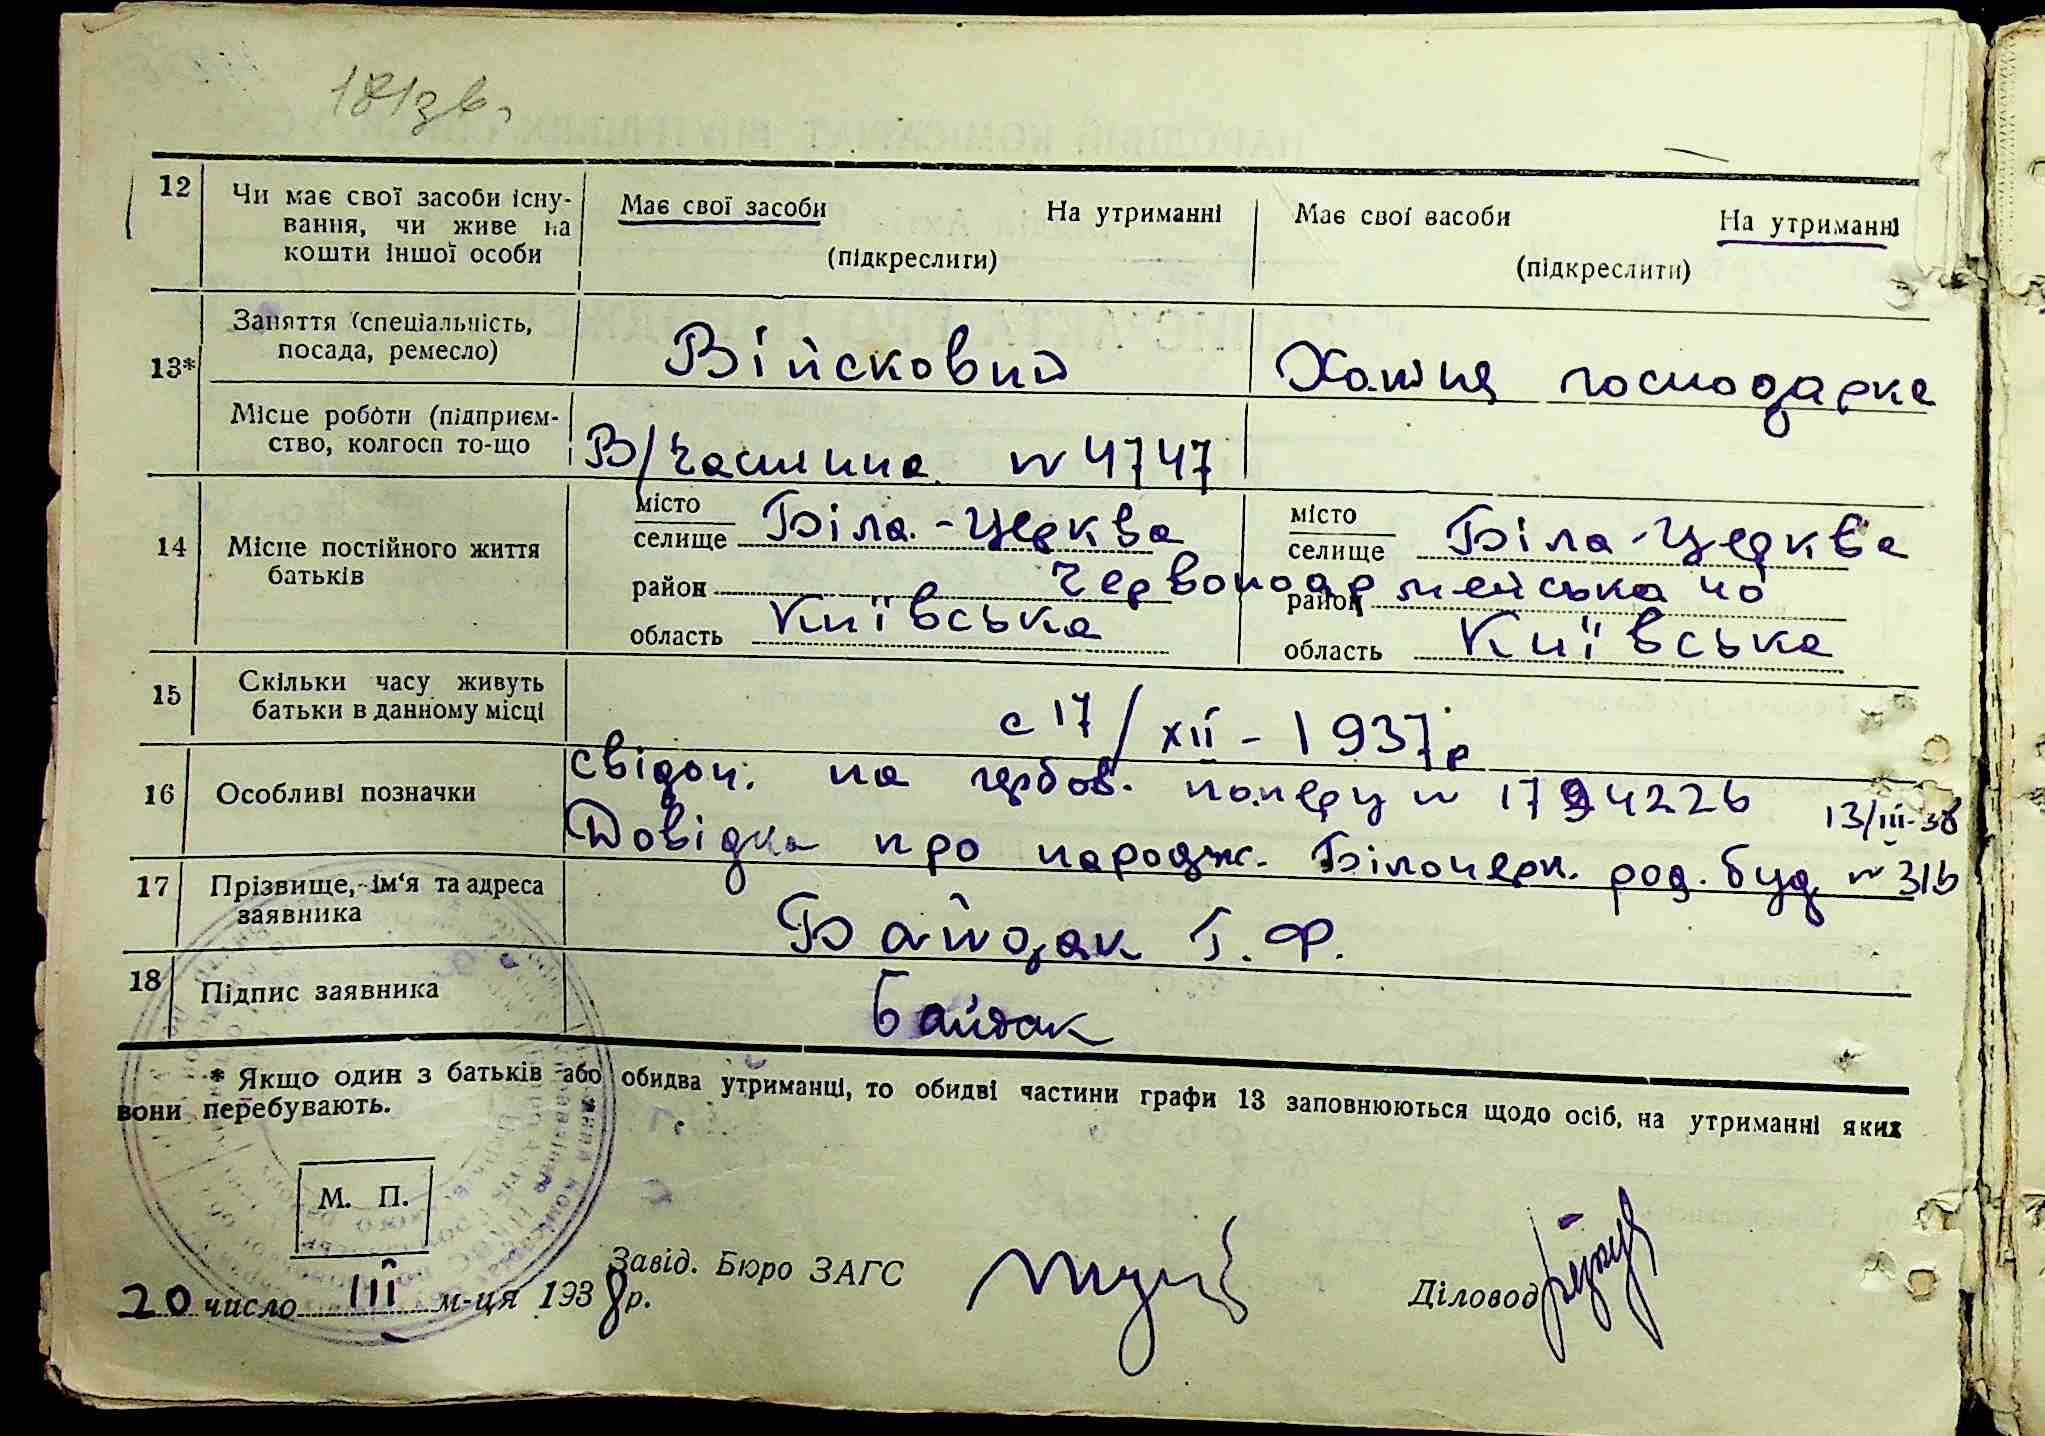 181зв.
12 Чи має свої засоби існу-
вання, чи живе на
кошти іншої особи
Має свої засоби На утриманні
(підкреслити)
Має свої засоби На утриманні
(підкреслити)
13* Заняття (спеціальність,
посада, ремесло)
Військовий
Хатня господарка
Місце роботи (підприєм-
ство, колгосп то-що
В/частина N 4747
14 Місце постійного життя
батьків
місто
селище Біла-Церква
район
область Київська
місто
селище Біла-Церква
Червоноармейська 40
район
область Київська
15 Скільки часу живуть
батьки в данному місці
с 17/XII - 1937р
16 Особливі позначки
свідоч. на гербов. паперу N 1794226 13/III-38
Довідка про народж. Білоцерк. род. буд N 316
17 Прізвище, ім'я та адреса
заявника
Байдак Г. Ф.
18 Підпис заявника
Байдак
* Якщо один з батьків або обидва утриманці, то обидві частини графи 13 заповнюються щодо осіб, на утриманні яких
вони перебувають.
М. П.
20 число III м-ця 1938р.
Завід. Бюро ЗАГС
Діловод